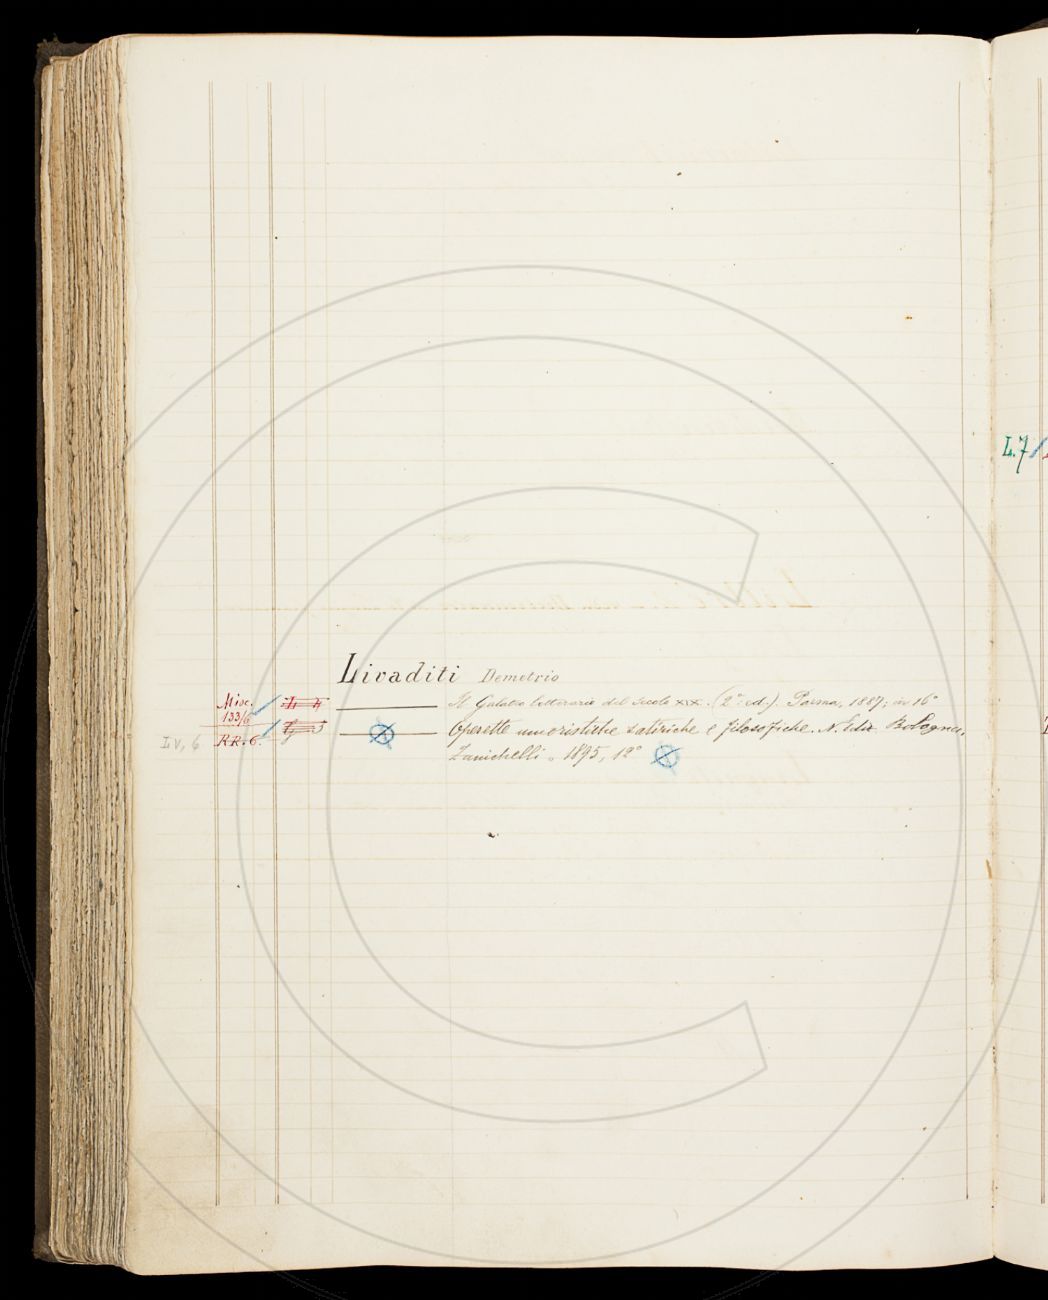 L.7
Livaditi Demetrio
Misc. 133/6 L 4 Il Galateo letterario del secolo XIX. (2ª ed.). Parma, 1887; in 16°
LV, 6 RR. 6. 5 Operette umoristiche satiriche e filosofiche. N. Ediz. Bologna,
Zanichelli, 1895, 12°